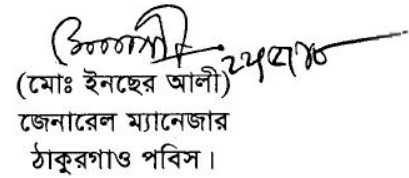 (মোঃ ইনছের আলী)
জেনারেল ম্যানেজার
ঠাকুরগাও পবিস।